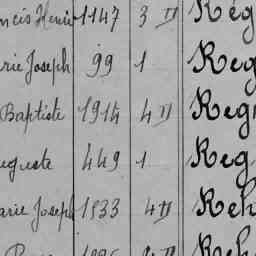 ncis Henri 1147 3 II Rég
rie Joseph 99 1 Reg
Baptiste 1914 4 II Regn
uguste 449 1 Reg
arie Joseph 1533 4 II Reh